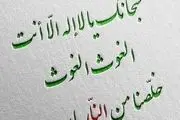 سبحانك يا لا إله إلا أنت
الغوث الغوث
خلصنا من النار